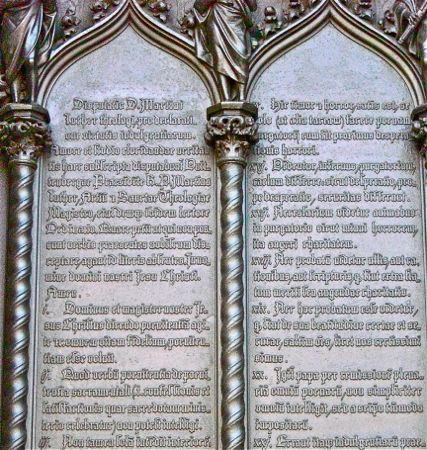 Disputatio D. Martini
Luther theologi, pro declarati
one virtutis indulgentiarum.
Amore et studio elucidandae verita
tis haec subscripta disputabūt Wit
tenbergae Praesidēte R. P. Martino
Luther, Artiū et Sacrae Theologiae
Magistro, eiusdemq; ibidem lectore
Ordinario. Quare petit ut qui nō pos
sunt verbis praesentes nobiscum dis
ceptare agant id literis absentes. In no
mine domini nostri Jesu Christi.
Amen.
i. Dominus et magister noster Je
sus Christus dicendo poenitentiā agi
te omnem vitam fidelium, poeniten
tiam esse voluit.
ij. Quod verbū poenitentia de poeni
tentia sacramentali confessionis et
satisfactionis quae sacerdotum minis
terio celebratur non potest intelligi.
iij. Non tamen solā intēdit interiorē
xv. Hic timor et horror satis est, se
solo ut alia taceam facere poenam
purgatorij cum sit proximus despera
tionis horrori.
xvj. Videntur, infernus, purgatorium,
caelum differre sicut desperatio, pro
pe desperatio, securitas differunt.
xvij. Necessarium videtur animabus
in purgatorio sicut minui horrorem,
ita augeri charitatem.
xviij. Nec probatū videtur ullis, aut ra
tionibus, aut scripturis q. sint extra sta
tum meriti seu augendae charitatis.
xix. Nec hoc probatum esse videtur,
q. sint de sua beatitudine certae et se
curae, saltem oēs, licet nos certissimi
simus.
xx. Igit papa per remissionē plena
riā omniū poenarū, non simpliciter
omniū intelligit, sed a seipso tātūmodo
impositarū.
xxj. Errant itaq; indulgentiarū prae